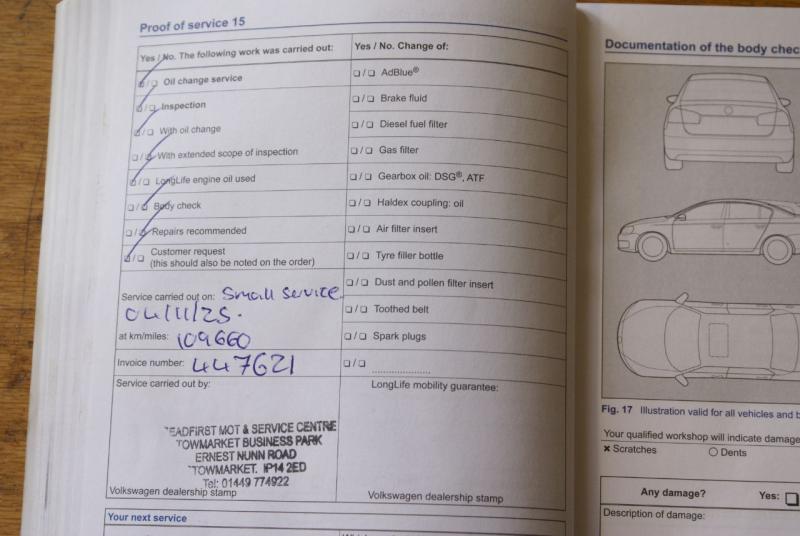 Proof of service 15
Yes / No. The following work was carried out:
☑ / ☐ Oil change service
☑ / ☐ Inspection
☑ / ☐ With oil change
☐ / ☑ With extended scope of inspection
☑ / ☐ LongLife engine oil used
☐ / ☑ Body check
☐ / ☑ Repairs recommended
☑ / ☐ Customer request
(this should also be noted on the order)
Service carried out on: Small Service
04/11/25.
at km/miles: 109660
Invoice number: 447621
Service carried out by:
EADFIRST MOT & SERVICE CENTRE
TOWMARKET BUSINESS PARK
ERNEST NUNN ROAD
TOWMARKET. IP14 2ED
Tel: 01449 774922
Volkswagen dealership stamp
Your next service
Yes / No. Change of:
☐ / ☐ AdBlue®
☐ / ☐ Brake fluid
☐ / ☐ Diesel fuel filter
☐ / ☐ Gas filter
☐ / ☐ Gearbox oil: DSG®, ATF
☐ / ☐ Haldex coupling: oil
☐ / ☐ Air filter insert
☐ / ☐ Tyre filler bottle
☐ / ☐ Dust and pollen filter insert
☐ / ☐ Toothed belt
☐ / ☐ Spark plugs
☐ / ☐ ....................
LongLife mobility guarantee:
Volkswagen dealership stamp
Documentation of the body chec
Fig. 17 Illustration valid for all vehicles and
Your qualified workshop will indicate damage
✗ Scratches ○ Dents
Any damage? Yes: ☐
Description of damage: